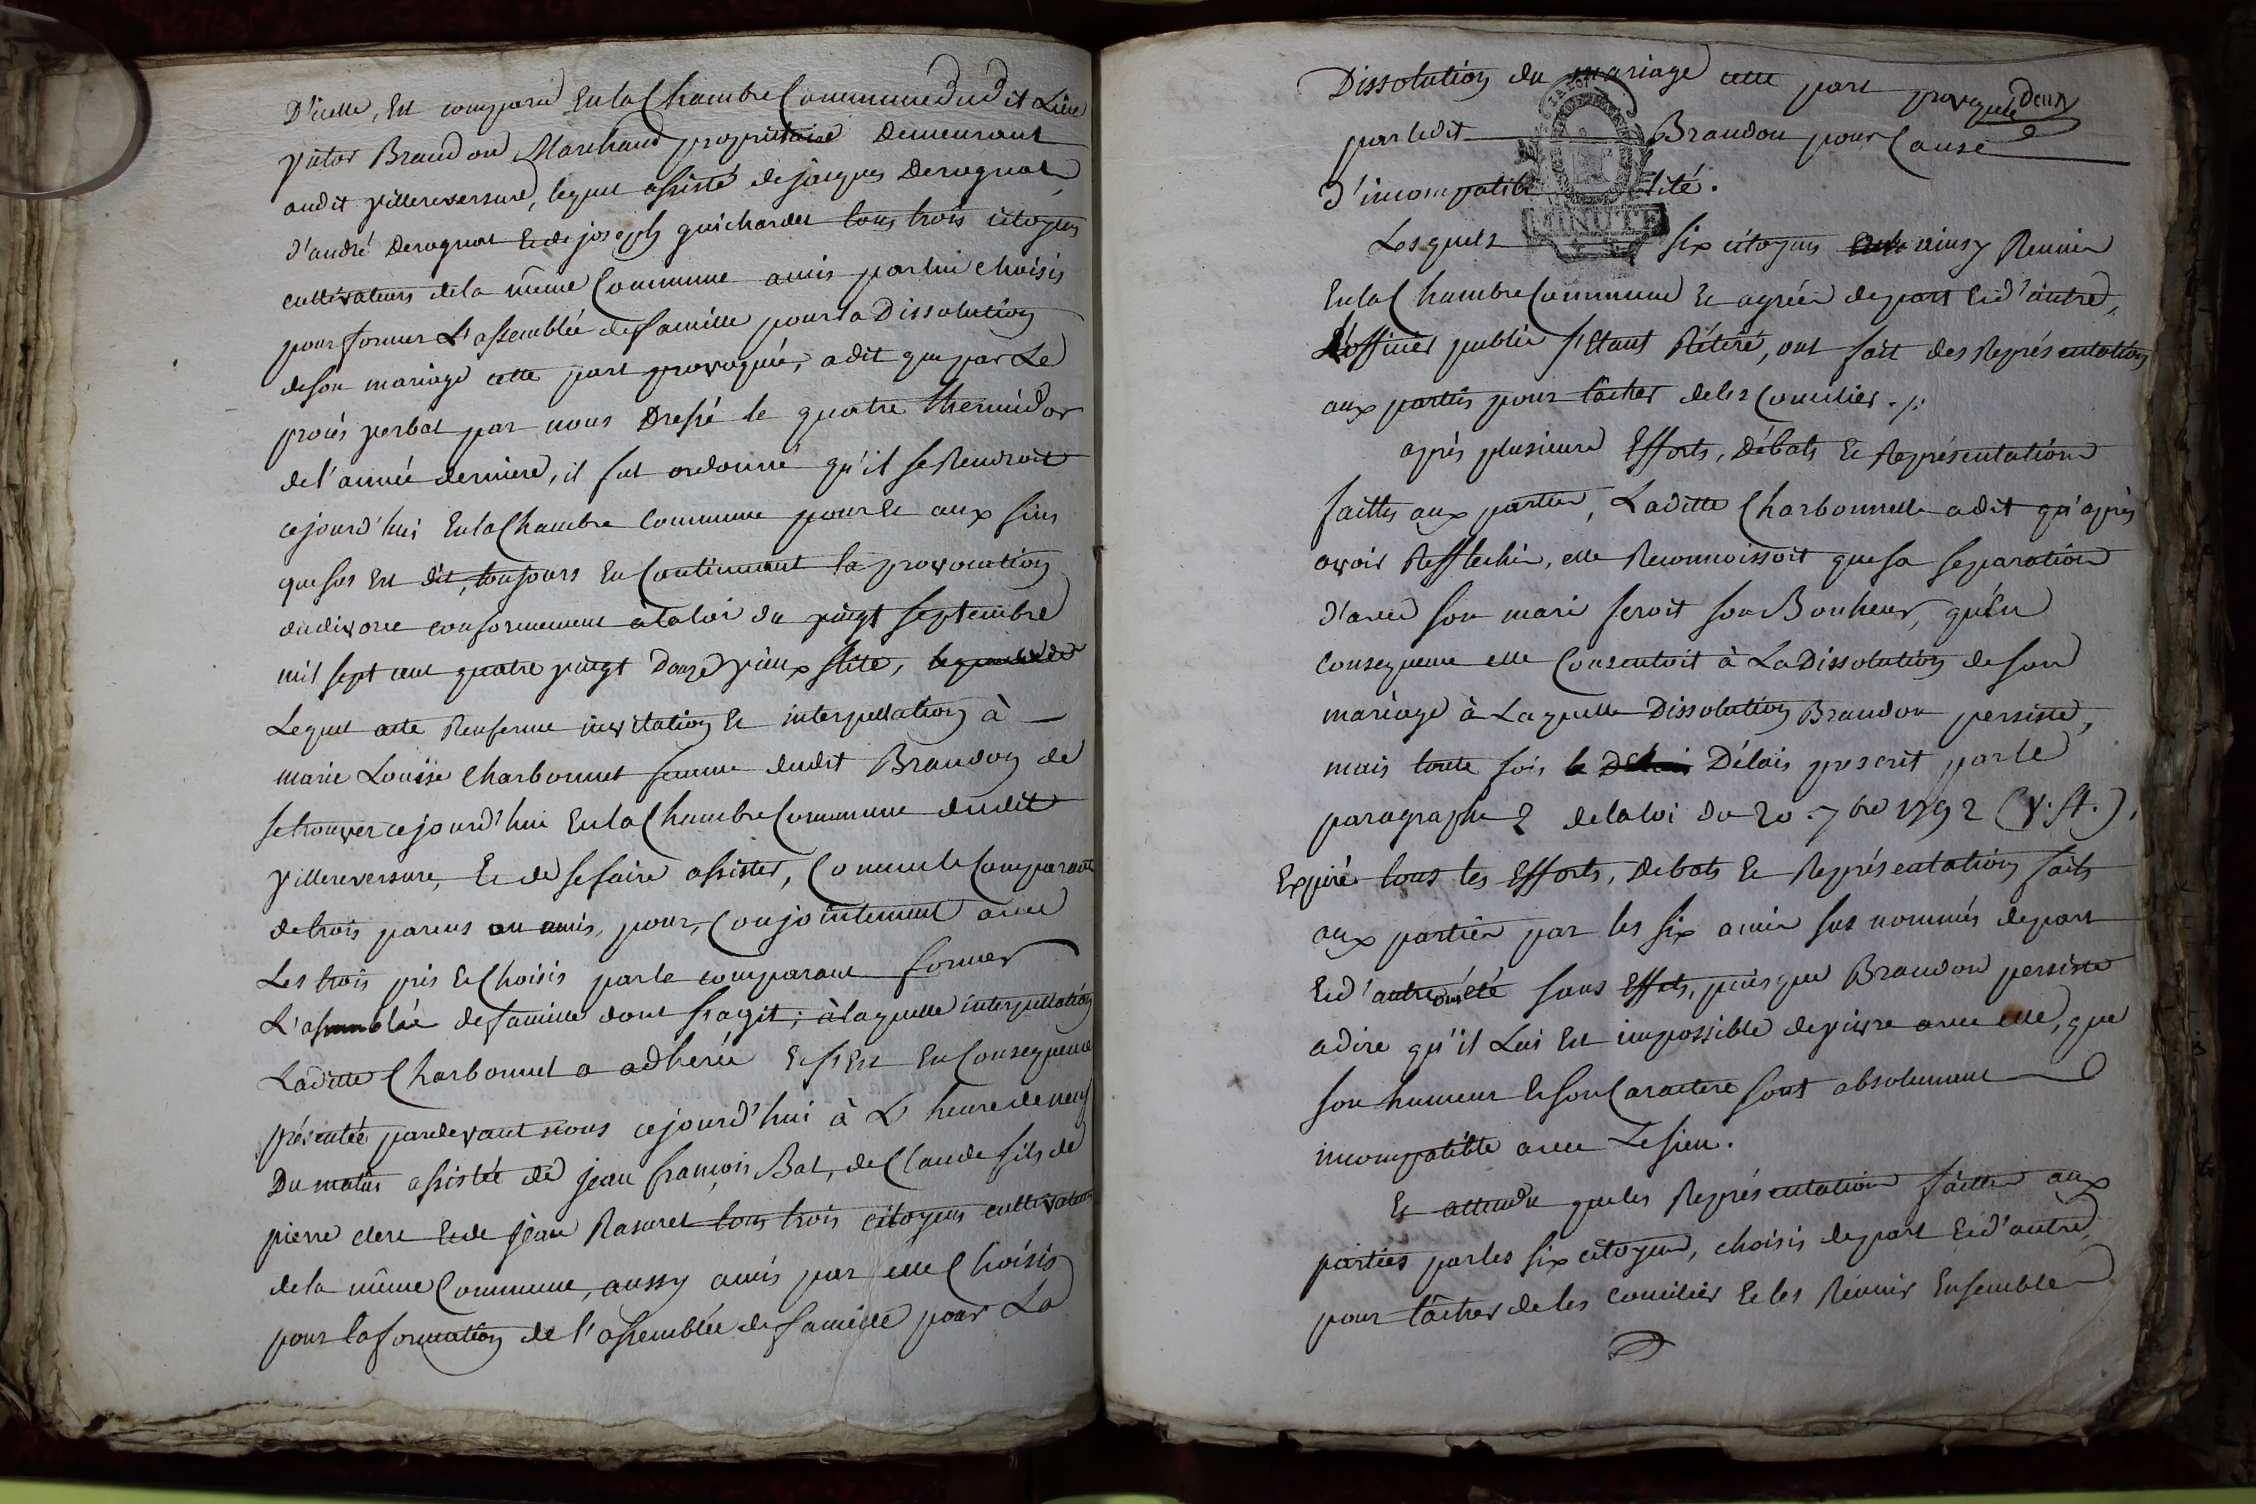 D'icelle, Est comparu En la Chambre Commune dudit Lieu
victor Brandon Marchand propriétaire Demeurant
audit villereversure, lequel assisté de jacques Derognat
d'andré Derognat Et de joseph guichardet tous trois citoyens
cultivateurs de la même Commune amis par lui choisis
pour former L'assemblée de famille pour la Dissolution
de son mariage cette part provoquée, a dit que par Le
procès verbal par nous Dressé le quatre thermidor
de l'année derniere, il fut ordonné qu'il se Rendroit
cejourd'hui En la Chambre Commune pour Et aux fins
que sus Est dit, toujours En Continuant la provocation
du divorce conformement à la loi du vingt septembre
mil sept cent quatre vingt Douze vieux stile,
Lequel acte Renferme invitation Et interpellation à
marie Louïse Charbonnet femme dudit Brandon de
se trouver cejourd'hui En la Chambre Commune dudit
villereversure, Et de se faire assister, Comme le Comparant
de trois parens ou amis, pour, Conjointement avec
Les trois pris Et Choisis par le comparant former
L'assemblée de famille dont s'agit; à laquelle interpellation
Laditte Charbonnet a adherée Et s'Est En Consequence
présentée pardevant nous cejourd'hui à L'heure de neuf
Du matin assistée de jean françois Bal, de Claude fils de
pierre clerc Et de jean Rasurel tous trois citoyens cultivateurs
de la même Commune, aussy amis par elle Choisis
pour la formation de l'assemblée de famille pour La
Deux
Dissolution du mariage cette part provoquée
par ledit Brandon pour Cause
d'incompatibilité.
LA LOI
MINUTE
Lesquels six citoyens ainsy Reunis
En la Chambre Commune Et agréés de part Et d'autre,
L'officier public s'Etant Rétiré, ont fait des Représentations
aux parties pour tâcher de les Concilier ./.
après plusieurs Efforts, Débats Et Représentations
faittes aux parties, Laditte Charbonnelle a dit qu'après
avoir Refflechie, elle Reconnoissoit que sa separation
d'avec son mari feroit son Bonheur, qu'En
consequence elle Consentoit à La Dissolution de son
mariage à Laquelle Dissolution Brandon persiste,
mais toute fois le Délais prescrit par le
paragraphe 2 de la loi du 20 . 7bre 1792 (v. st.),
Expiré tous les Efforts, débats Et Représentations faits
aux parties par les six amis sus nommés de part
Et d'autre ont été sans Effets, puis que Brandon persiste
a dire qu'il Lui Est impossible de vivre avec elle, que
son humeur Et son Caractere sont absolument
incompatible avec Le sien.
Et attendu que les Représentations faittes aux
parties par les six citoyens, choisis de part Et d'autre
pour tâcher de les concilier Et les Réunir Ensemble